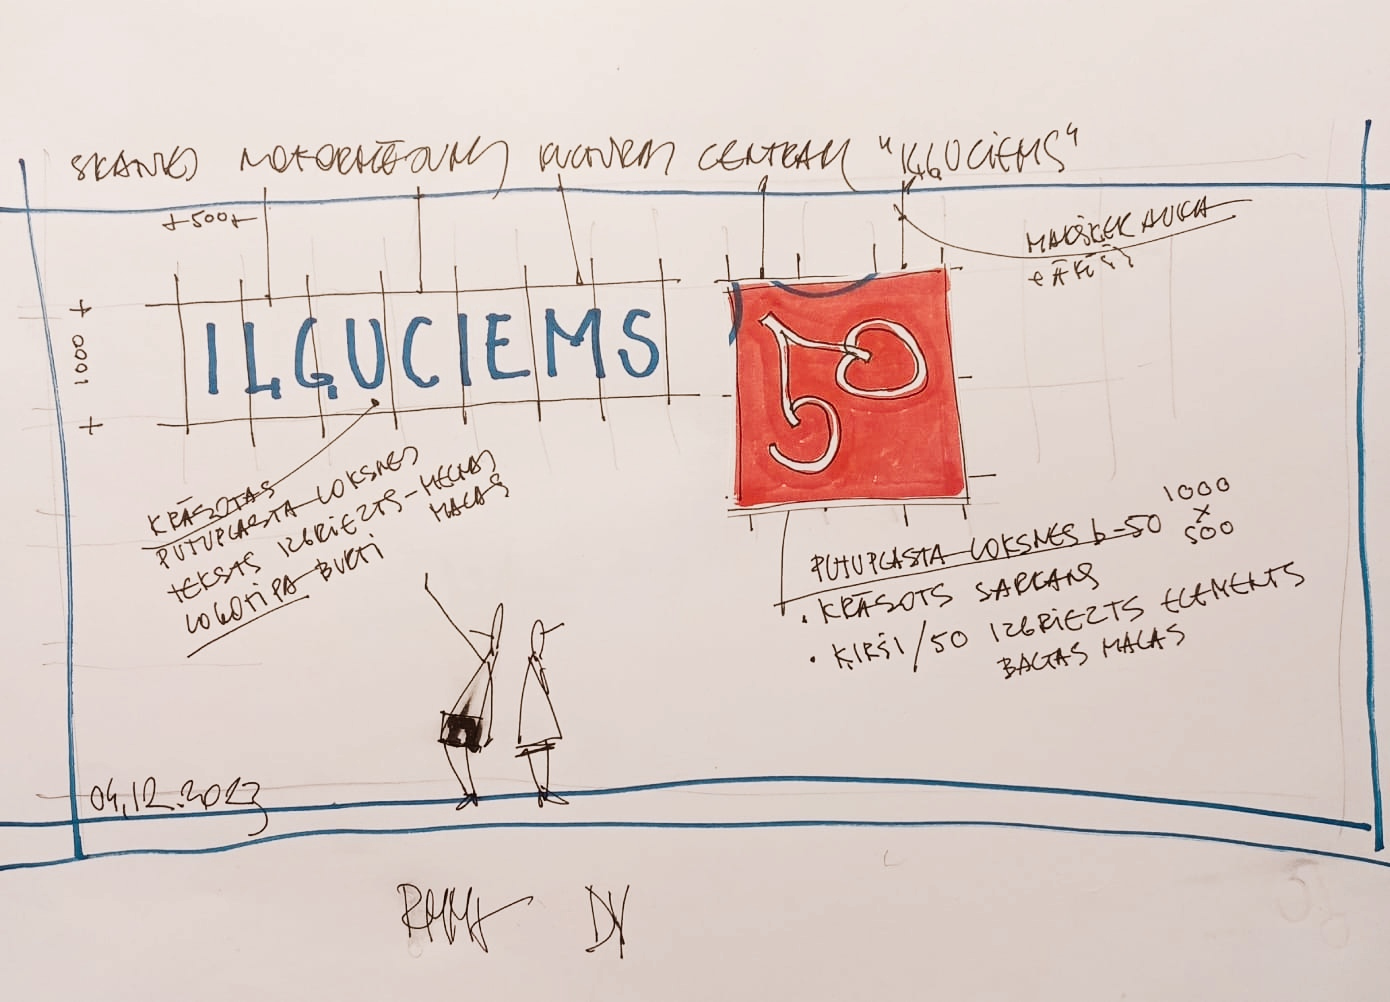 SKATUVES NOFORMĒJUMS KULTŪRAS CENTRAM "IĻĢUCIEMS"
500
MAKŠĶERAUKLA
+ ĀĶIŠI
1000
ILĢUCIEMS
50
KRĀSOTAS
PUTUPLASTA LOKSNES
TEKSTS IZGRIEZTS - MELNAS
MALAS
LOGOTIPA BURTI
PUTUPLASTA LOKSNES b=50 1000
x
500
• KRĀSOTS SARKANS
• ĶIRŠI/50 IZGRIEZTS ELEMENTS
BALTAS MALAS
04.12.2023
DV